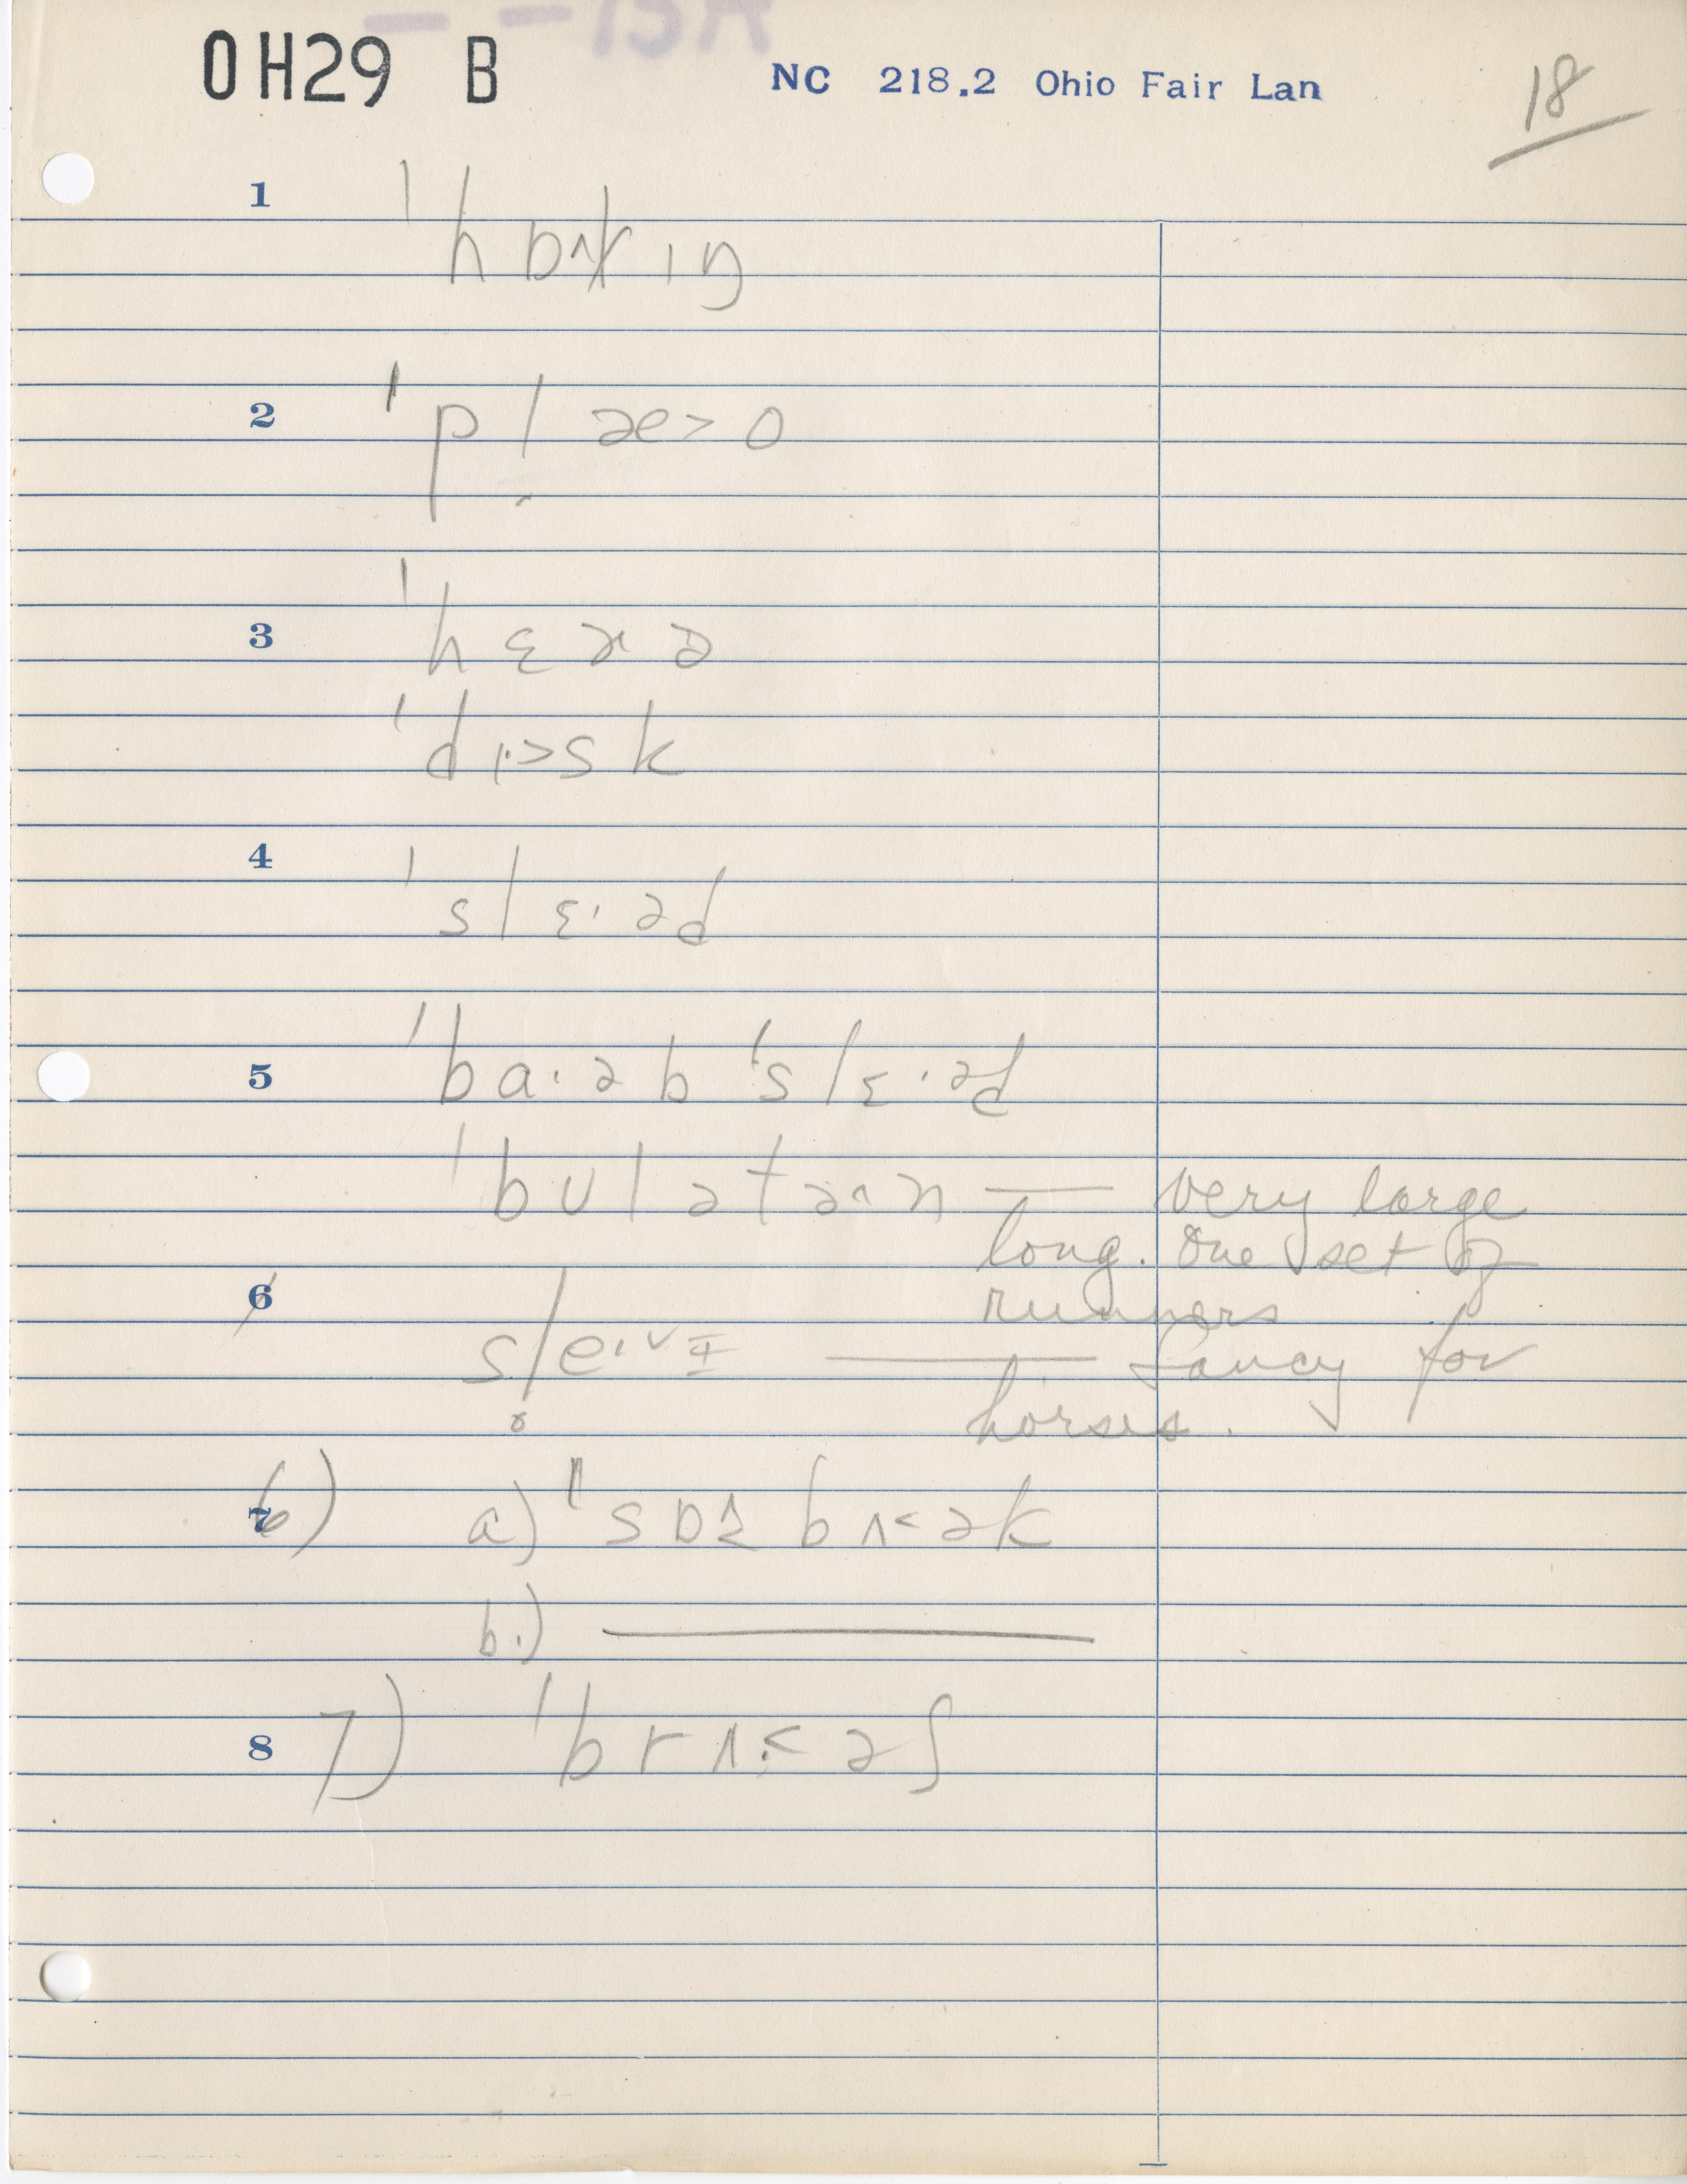 OH29 B NC 218.2 Ohio Fair Lan 18
1 ˈhɒ˄kɪŋ
2 ˈplæ˃o
3 ˈhɛɚə
ˈdɪ˃sk
4 ˈslɛ·əd
5 ˈba·əb ˈslɛ·əd
ˈbʊlətə˄n — very large
long. One set of
runners
6 sl̥e·ᵛɪ — fancy for
horses.
6) 7 a)
b.) —
7) 8 ˈbrʌ˂əʃ